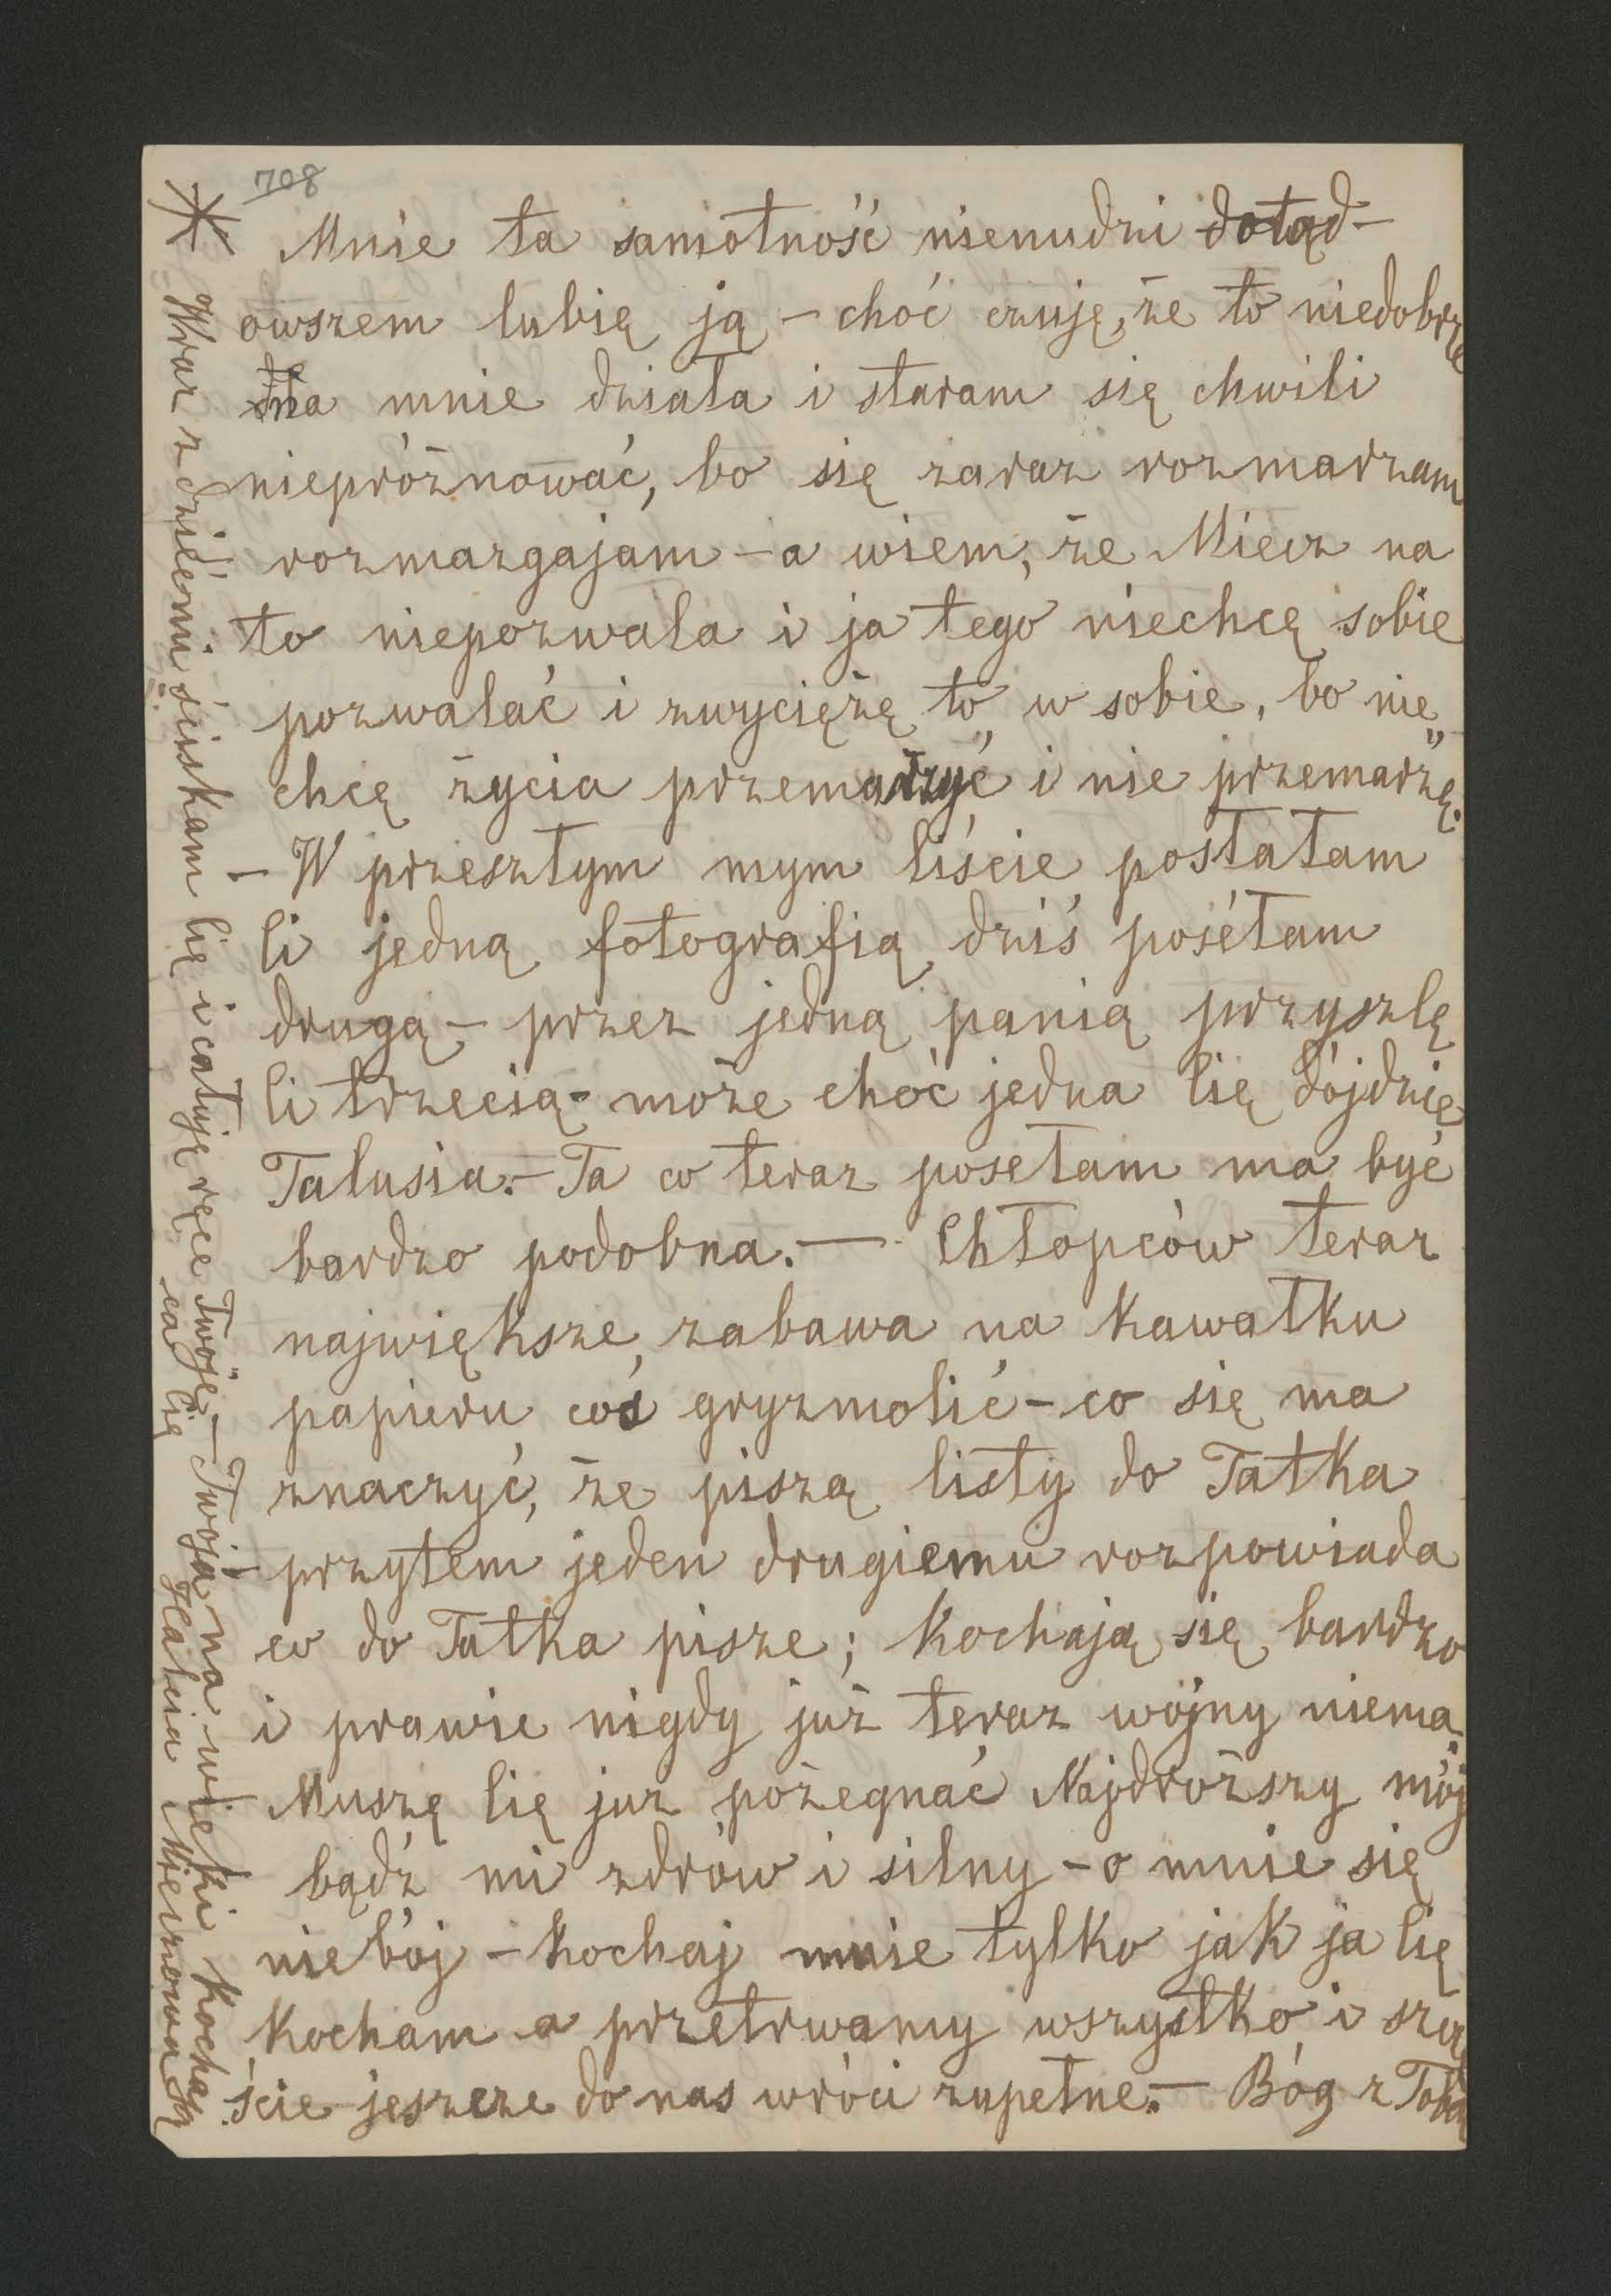 708
Mnie ta samotność nienudzi dotąd –
owszem lubię ją – choć czuję, że to niedobrze
na mnie działa i staram się chwili
niepróżnować, bo się zaraz rozmarzam
rozmazgajam – a wiem, że Miecz na
to niepozwala i ja tego niechcę sobie
pozwalać i zwyciężę to w sobie, bo nie
chcę życia „przemarzyć” i nie przemarzę.
– W przeszłym mym liście posłałam
Ci jedną fotografią, dziś posełam
drugą – przez jedną panią przyszlę
Ci trzecią – może choć jedna Cię dójdzie
Talusia. – Ta co teraz posełam ma być
bardzo podobna. — Chłopców teraz
największe zabawa na kawałku
papieru coś gryzmolić – co się ma
znaczyć, że piszą listy do Tatka
przytem jeden drugiemu rozpowiada
co do Tatka pisze; kochają się bardzo
i prawie nigdy już teraz wojny niema.
Muszę Cię już pożegnać Najdroższy mój
bądź mi zdrów i silny – o mnie się
niebój – kochaj mnie tylko jak ja Cię
kocham a przetrwamy wszystko i szczę
ście jeszcze do nas wróci zupełne. – Bóg z Tobą
* Wraz z dziećmi ściskam Cię i całuję ręce Twoje – Twoja na wieki kochają
ca Cię Halcia Mieczowa